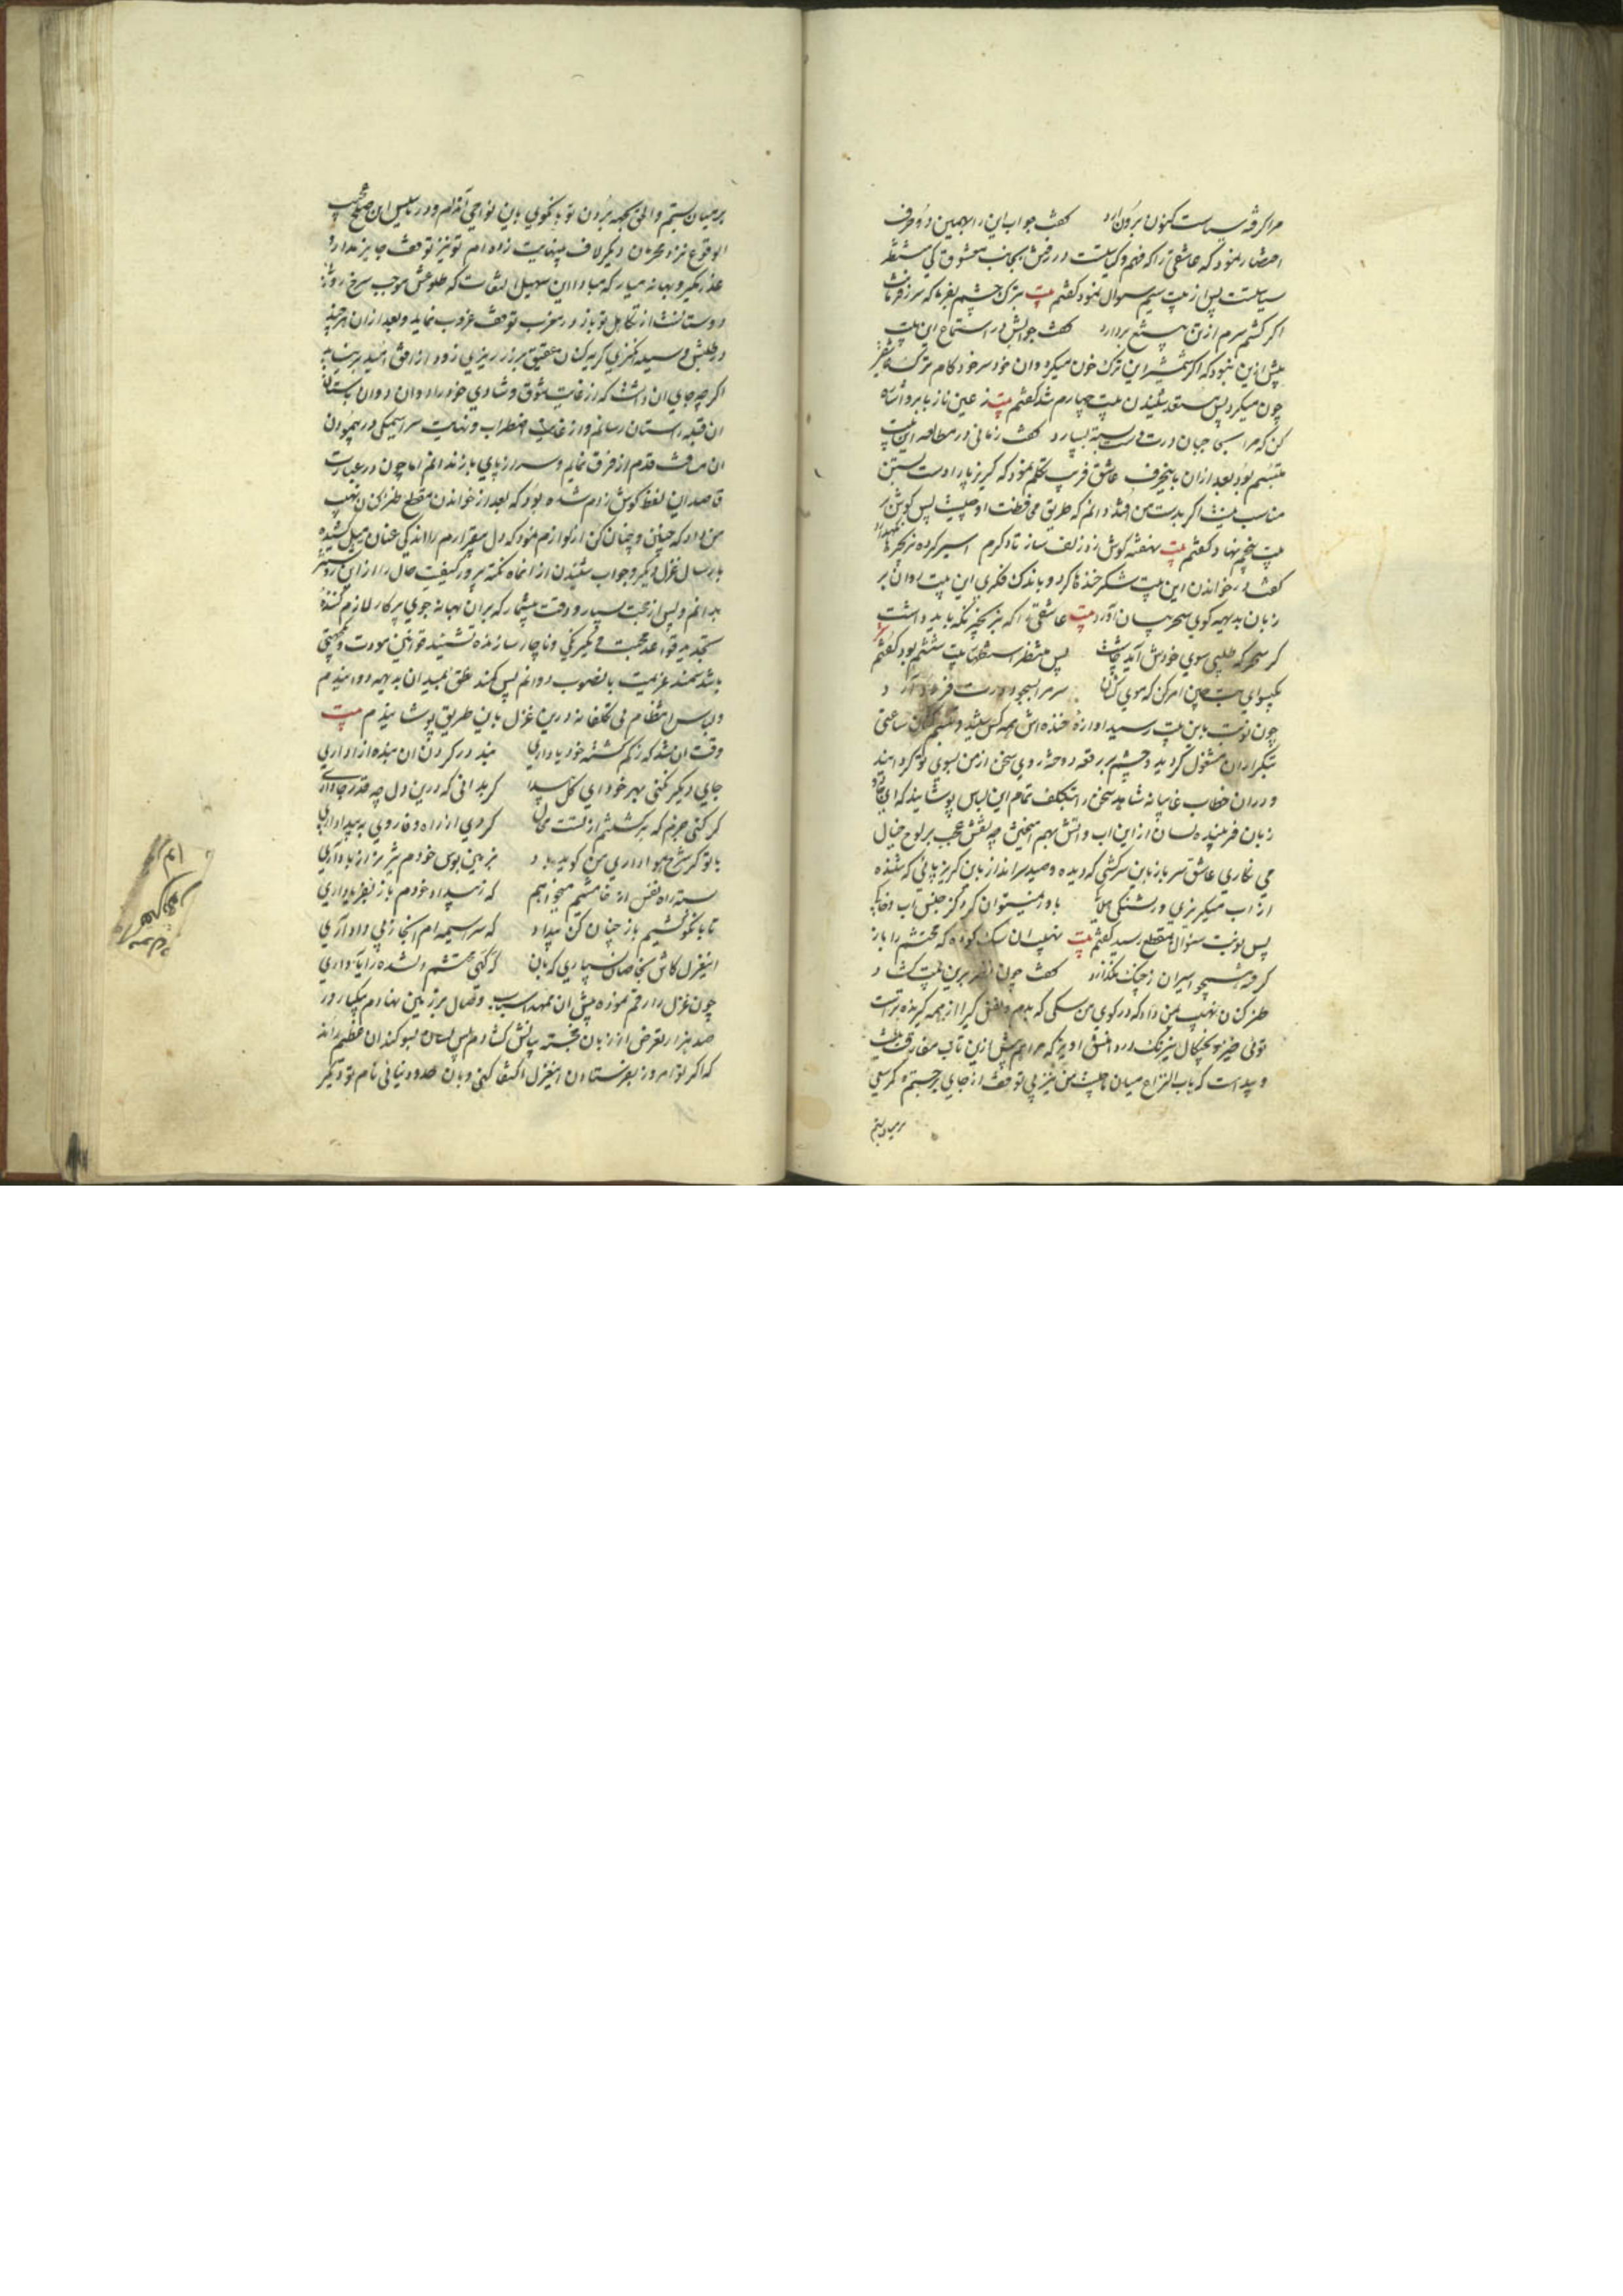 مرا گرفته سیاست کنون برون آرد گفت جواب این را همین دو حرف
احضار نمود که عاشقی را که فهم و کیاست در رفتن بجانب معشوق کی منتظر
سیاستت پس از بیت سیم سوال نمود گفتم بیت بترک چشم بفرما که سر ز فرمانت
اگر کشم سرم از تن به تیغ بردارد گفت جوابش در استماع این بیت
بیش ازین نبود که اگر شمشیر این ترک خون میکرد و آن خودسر خودکام ترک
چون میکرد پس مستعد شنیدن بیت چهارم شد گفتم بیت ز عین ناز بابرو اشاره
کن که مرا بسجای جهان درت دست بسته بسپارد گفت زمانی در مطالعه این بیت
متبسم بود بعد ازان باین حرف عاشق فریب تکلم نمود که گریزپا را دست بستن
مناسب نیست اگر بدست من افتد دانم که طریق محافظت او چیست پس گوش بر
بیت پنجم نهاد گفتم بیت بنفشه گوش زد زلف ساز تا دگرم اسیر کرده بزنجیرها
گفت در خواندن این بیت شکرخندها کرد و باندک فکری این بیت روان بر
زبان بدیهه گوی سحر بیان آورد بیت عاشقی را که بزنجیر نگه باید داشت
گر سحرگه طلبی سوی خودش آید چاشت پس منتظر استماع بیت ششم بود گفتم
بگیسوان امر کن که موی کشان سرم بسجود درت فرود آرد
چون نوبت باین بیت رسید آوازه خنده اش همه کس شنید و تبسم کنان ساعتی
بتکرار آن مشغول گردید و چشم بر رقعه دوخته روی سخن از من بسوی تو گردانید
و دران خطاب غایبانه شاهد سخن را بتکلف تمام این لباس پوشانید که ای
زبان فریبنده لسان از این آب و آتش بهم آمیختن چه نقش عجب بر لوح خیال
می نگاری عاشق سرباز باین سرکشی که دیده و صید سرانداز باین گریزپائی که شنیده
از آب میگریزی و تشنگی باور نمیتوان کرد کز جنس آب و خاکی
پس نوبت سئوال بمقطع رسید گفتم بیت نهیب آن سگ کو ده که محتشم را باز
گرفته سوی اسیران ز چنگ نگذارد گفت چون نظر برین بیت گشاد
طنزکنان نهیب بمن داد که در کوی من سگی که بدم و نفس گیرا از همه گیرنده تراست
توئی خیز و چنگال نیرنگ در دامنش آویز که مرا هم بیش ازین تاب مفارقت نیست
و پیداست که باب النزاع میان ما چیست من نیز بی توقف از جای برجستم و کمر سعی
بر میان بستم
بر میان بستم و الحق بجهة بردن تو بانگوئی باین نواحی آمدم و در تاسیس این صلح عجیب
الوقوع نزد محرمان دیگر لاف بینهایت زده ام تو نیز توقف جایز مدار و
عذر مگیر و بهانه میار که مبادا این سهیل التفات که طلوعش موجب سرخ روئی
دوستانست از تکاهل تو باز در مغرب توقف غروب نماید و بعد ازان هر چند
در طلبش وسیله انگیزی گریه کنان عقیق بر زر ریزی زود از افق امید برنیاید
اگر چه جای آن داشت که از غایت شوق و شادی خود را دوان دوان بآستان
آن قبله راستان رسانم و از غایت اضطراب و نهایت سراسیمگی در پیمودن
آن مسافت قدم از فرق نمایم و سر را ز پای باز ندانم اما چون در عبارت
قاصد این لفظ گوش زدم شده بود که بعد از خواندن مقطع طنزکنان نهیب
من داد که چنین و چنان کن از لوازم نمود که دل بیقرارم را اندکی عنان تعجیل کشیده
بارسال غزل دیگر و جواب شنیدن از آن ماه نکته پرور کیفیت حال را از این روشنتر
بدانم و پس از محبت بسیار و دقت بیشمار که بر آن بهانه جوی پرکار لازم کننده
تجدید قواعد محبت و یکرنگی و ناچار سازنده تشیید قوانین مودت و یکجهتی
باشد سمند عزیمت بآنصوب دوانم پس کمند نطق بمیدان بدیهه دوانیدم
و لباس انتظام بی تکلفانه درین غزل باین طریق پوشانیدم بیت
وقت آن شد که ز گم گشته خود یاد آری بنده در گردن آن بنده آزاد آری
جای دیگر نکنی مهر خود ای گل پیدا گر بدانی که درین دل چه قدر جا داری
گر کنی جزم که برگشتم از تست محال گر روی از راه وفا روی به بیداد آری
با تو گر شرح هواداری من گوید باد بزمین بوس خودم تیزتر از باد آری
بسته راه نفس از خامشیم میخواهم که ز بیداد خودم باز بفریاد آری
تا بانگو نشیم باز چنان کن بیداد که سراسیمه ام آنجا ز پی داد آری
این غزل کاش بخاصان بسپاری که بآن گه گهی محتشم دلشده را یاد آری
چون غزل را رقم نموده پیش آن ممهد اسباب وصال بر زمین نهادم یکبار در
صد هزار تعرض از زبان خجسته بیانش گشادم پس لسان بسوگندان عظیم راند
که اگر تو امروز بفرستادن این غزل اکتفا کنی و بآن حدود نیائی نام تو دیگر